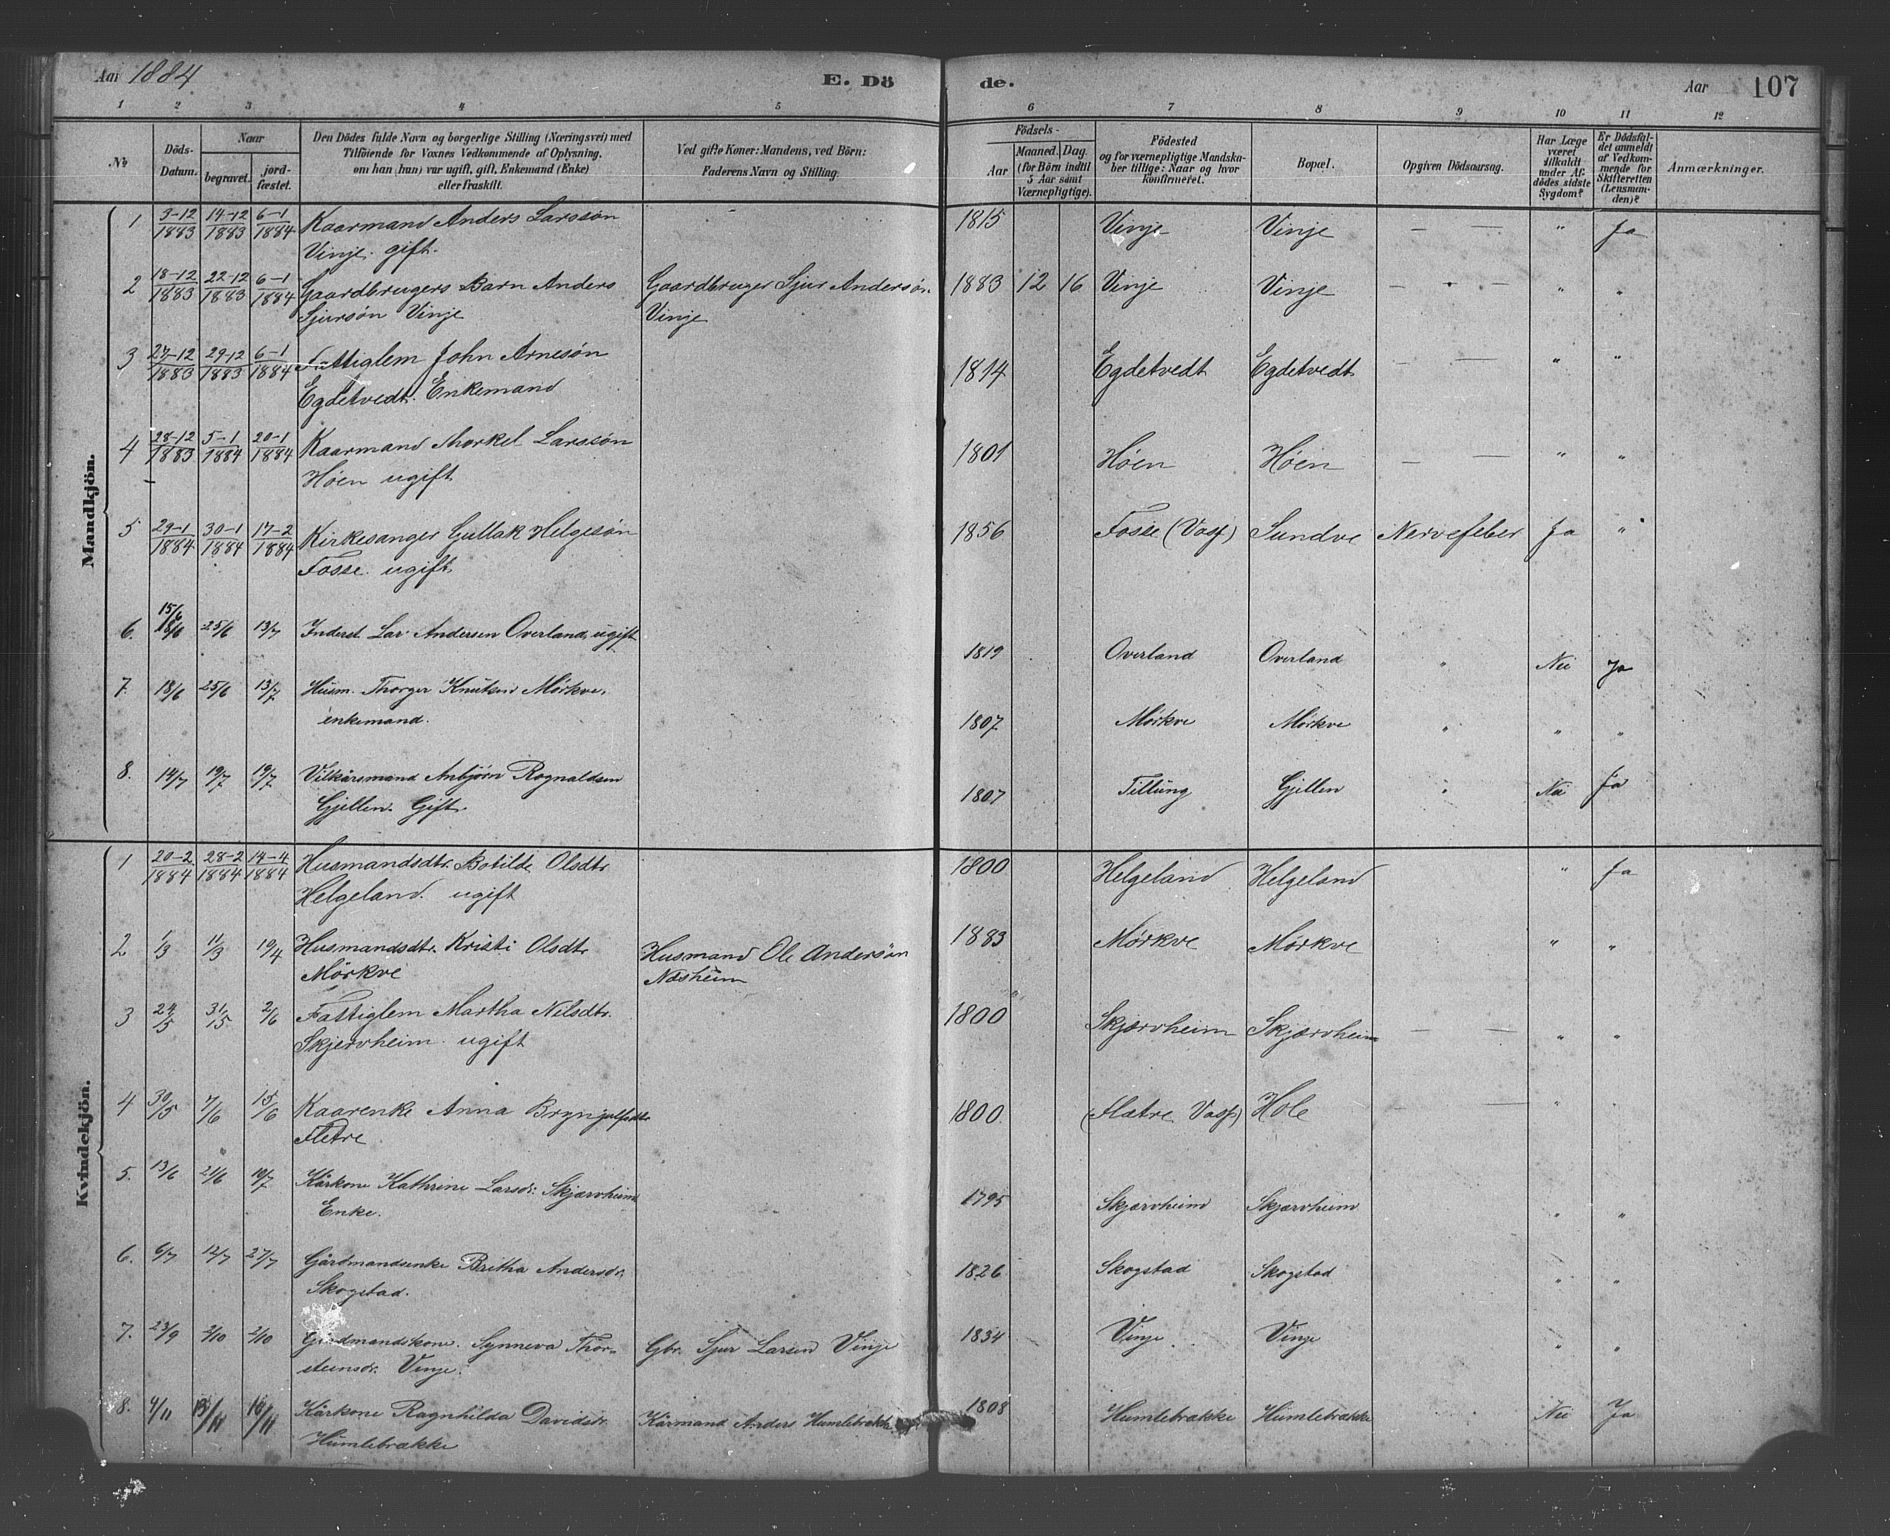 Aar 1884 E. Dö de. Aar 107
1 2 3 4 5 6 7 8 9 10 11 12
No
Döds-Datum.
Naar
begravet. jordfæstet.
Den Dödes fulde Navn og borgerlige Stilling (Næringsvei) med Tilföiende for Voxnes Vedkommende af Oplysning, om han (hun) var ugift, gift, Enkemand (Enke) eller fraskilt.
Ved gifte Koner: Mandens, ved Börn: Faderens Navn og Stilling.
Födsels-
Aar Maaned. Dag. (for Börn indtil 5 Aar samt Værnepligtige).
Födested og for værnepligtige Mandskaber tillige: Naar og hvor konfirmeret.
Bopæl.
Opgiven Dödsaarsag.
Har Læge været tilkaldt under Afdödes sidste Sygdom?
Er Dödsfaldet anmeldt af Vedkommende for Skifteretten (Lensmanden)?
Anmærkninger.
Mandkjön.
1 3-12 1883 14-12 1883 6-1 1884 Kaarmand Anders Larssøn 1815 Vinje Vinje — — " Ja
Vinje. gift.
2 18-12 1883 22-12 1883 6-1 1884 Gaardbrugers Barn Anders Gaardbruger Sjur Andersøn 1883 12 16 Vinje Vinje — — " "
Sjursøn Vinje Vinje
3 24-12 1883 29-12 1883 6-1 1884 Fattiglem John Arnesøn 1814 Egdetvedt Egdetvedt — — " "
Egdetvedt. Enkemand
4 28-12 1883 5-1 1884 20-1 1884 Kaarmand Thorkel Larssøn 1801 Høen Høen — — " "
Høen ugift
5 29-1 1884 30-1 1884 17-2 1884 Kirkesanger Gullak Helgesøn 1856 Fosse (Voss) Sundve Nervefeber Ja "
Fosse. ugift
6. 15/6 25/6 13/7 Inderst Lar Andersen Overland, ugift 1819 Overland Overland " Nei Ja
7. 18/6 25/6 13/7 Husm. Thorger Knutsen Mørkve, 1807 Mørkve Mørkve " " "
enkemand.
8. 14/7 19/7 19/7 Vilkårsmand Anbjørn Rognaldsen 1807 Tillung Gjellen " Nei Ja
Gjellen. Gift.
Kvindekjön.
1 20-2 1884 28-2 1884 14-4 1884 Husmandsdtr. Botilde Olsdtr 1800 Helgeland Helgeland " Ja
Helgeland. ugift
2 1/3 11/3 19/4 Husmandsdtr. Kristi Olsdtr. Husmand Ole Andersøn 1883 Mørkve Mørkve " "
Mørkve Næsheim
3 24/5 31/5 2/6 Fattiglem Martha Nilsdtr. 1800 Skjærvheim Skjærvheim — — " "
Skjervheim. ugift
4 30/5 7/6 15/6 Kaarenke Anna Bryngelfsdtr 1800 (Flætre Voss) Hole — — "
Fletre
5. 13/6 21/6 19/7 Kårkone Kathrine Larsdr: Skjærvheim 1795 Skjærvheim Skjærvheim " "
Enke.
6. 6/7 12/7 27/7 Gårdmandsenke Britha Andersdr. 1826 Skogstad Skogstad " "
Skogstad.
7. 23/9 2/10 2/10 Gårdmandskone. Synneva Thor- Gbr. Sjur Larsen Vinje 1834 Vinje Vinje " "
steinsdr. Vinje.
8. 4/11 13/11 16/11 Kårkone Ragnhilda Davidsdr. Kårmand Anders Humlebrække 1808 Humlebrække Humlebrække Nei Ja
Humlebrække